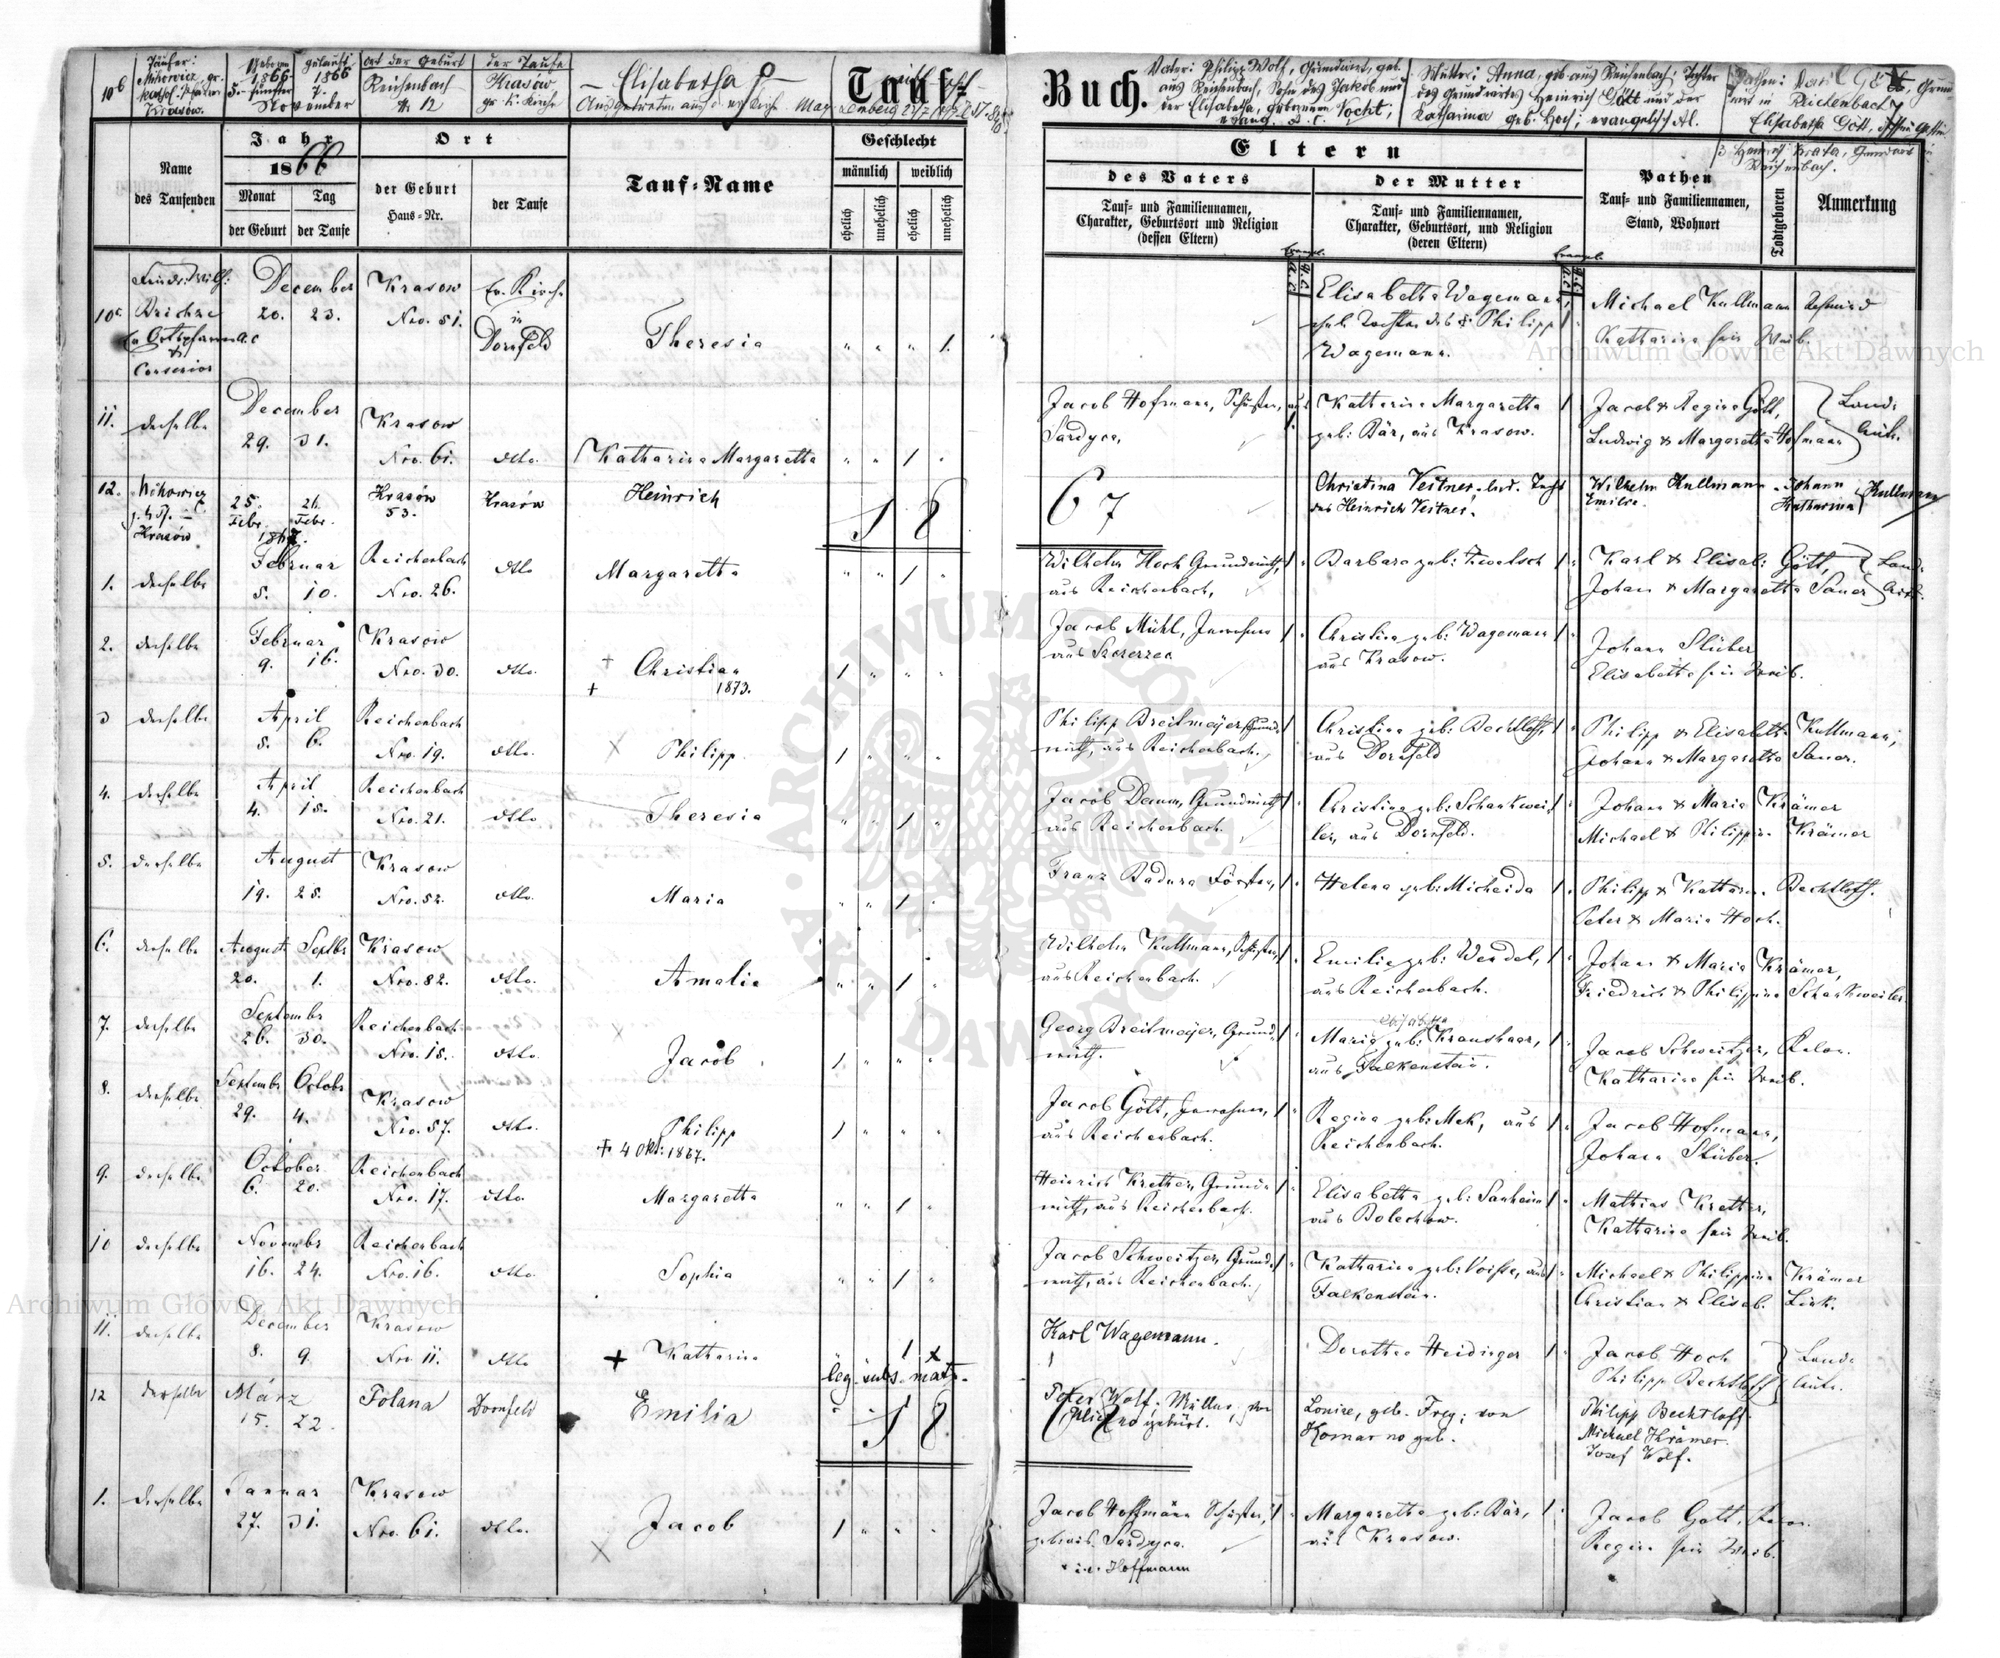 10b
Täufer:
Mihowicz, gr.
kathol. Pfarrer
Krasów.
Geboren
1866
5.
November
getauft
1866
7.
Ort der Geburt
Reichenbach
N. 12
der Taufe
Krasów
gr. k. Kirche
— Elisabetha —
Tauf-
Buch.
Vater: Philipp Wolf, Grundwirt, geb.
aus Reichenbach, Sohn des Jakob und
der Elisabetha, geborenen Vocht;
evang. A. C.
Mutter: Anna, geb. aus Reichenbach, Tochter
des Grundwirtes Heinrich Gött und der
Katharina geb. Hoch; evangelisch A.
Pathen: Karl Gött, Grund-
wirt in Reichenbach
Elisabetha Gött, dessen Gattin
3 Heinrich Krater, Grundwirt
Reichenbach.
Name
des Taufenden
Jahr
1866
Monat
Tag
der Geburt
der Taufe
Ort
der Geburt
Haus-Nr.
der Taufe
Tauf-Name
Geschlecht
männlich
weiblich
ehelich
unehelich
ehelich
unehelich
Eltern
des Vaters
Tauf- und Familiennamen,
Charakter, Geburtsort und Religion
(dessen Eltern)
der Mutter
Tauf- und Familiennamen,
Charakter, Geburtsort, und Religion
(deren Eltern)
Pathen
Tauf- und Familiennamen,
Stand, Wohnort
Todtgeboren
Anmerkung
Evangl.
A.C.
H.C.
Evangl.
A.C.
H.C.
10c
December
20. 23.
Krasow
Nro. 51.
Ev. Kirche
in
Dornfeld
Theresia
" " " 1.
Elisabetha Wagemann,
ehel. Tochter des Philipp
Wagemann.
Michael Kullmann
Katharina sein Weib.
11. derselbe
December
29. 31.
Krasow
Nro. 61.
dtto.
Katharina Margaretha
" " 1 "
Jacob Hofmann, Schuster, aus
Sardyca,
Katharina Margaretha
geb: Bär, aus Krasow.
Jacob & Regina Gött,
Ludwig & Margaretha Hofmann
Land-
leute.
12. Mihowicz
Krasów
25.
Febr.
26.
Febr.
1867.
Krasów
53.
Krasów
Heinrich
5 8
67
Christina Veitner, led. Tocht
des Heinrich Veitner.
Wilhelm Kullmann
Emilie.
Johann
Katharina
Kullmann
1. derselbe
Februar
5. 10.
Reichenbach
Nro. 26.
dtto
Margaretha
" " 1 "
Wilhelm Hoch Grundwirth,
aus Reichenbach,
Barbara geb: Koelsch
Karl & Elisab: Gött,
Johann & Margaretha Sauer
Land-
leute.
2. derselbe
Februar
9. 16.
Krasow
Nro. 30.
dtto.
Christian
+ 1873.
1 " " "
Jacob Mühl, Inwohner
aus Szczerzec
Christina geb: Wagemann
aus Krasow.
Johann Stüber
Elisabetha sein Weib.
3 derselbe
April
5. 6.
Reichenbach
Nro. 19.
dtto.
Philipp.
1 " " "
Philipp Breitmeyer, Grund-
wirth, aus Reichenbach,
Christina geb: Bechtloff,
aus Dornfeld
Philipp & Elisabetha Kullmann,
Johann & Margaretha Sauer.
4. derselbe
April
4. 15.
Reichenbach
Nro. 21.
dtto
Theresia
" " 1 "
Jacob Daum, Grundwirth
aus Reichenbach.
Christina geb: Schankwei-
ler, aus Dornfeld.
Johann & Maria Krämer
Michael & Philippine Krämer
5. derselbe
August
19. 25.
Krasow
Nro. 52.
dtto.
Maria
" " 1 "
Franz Badura Förster,
Helena geb: Micheida
Philipp & Kathar. Bechtloff.
Peter & Maria Hoch.
6. derselbe
August Septbr
20. 1.
Krasow
Nro. 82.
dtto.
Amalie
" " 1 "
Wilhelm Kullmann, Schuster,
aus Reichenbach.
Emilie geb: Wendel,
aus Reichenbach.
Johann & Maria Krämer,
Friedrich & Philippine Schankweiler.
7. derselbe
Septembr
26. 30.
Reichenbach
Nro. 15.
dtto.
Jacob
1 " " "
Georg Breitmeyer, Grund-
wirth.
Elisabetha
Maria geb: Kraushaar,
aus Falkenstein.
Jacob Schweitzer, Kolon.
Katharina sein Weib.
8. derselbe
Septembr Octobr
29. 4.
Krasow
Nro. 57.
dtto.
Philipp
+ 4 Okt. 1867.
1 " " "
Jacob Gött, Inwohner,
aus Reichenbach.
Regina geb: Mek, aus
Reichenbach.
Jacob Hofmann,
Johann Stüber.
9. derselbe
October
6. 20.
Reichenbach
Nro. 17.
dtto.
Margaretha
" " 1 "
Heinrich Kretter, Grund-
wirth, aus Reichenbach.
Elisabetha geb: Sanheim
aus Bolechow.
Mathias Kretter,
Katharina sein Weib.
10 derselbe
Novembr
16. 24.
Reichenbach
Nro. 16.
dtto.
Sophia
" " 1 "
Jacob Schweitzer, Grund-
wirth, aus Reichenbach.
Katharina geb: Voisse, aus
Falkenstein.
Michael & Philippine Krämer
Christian & Elisab. Link.
11. derselbe
December
8. 9.
Krasow
Nro 11.
dtto
+ Katharina
1 x
leg. subs. matr.
Karl Wagemann.
Dorothea Heidinger
Jacob Hoch
Philipp Bechtloff
Land-
leute.
12 derselbe
März
15. 22.
Polana
Dornfeld
Emilia
5 8
Peter Wolf, Müller, von
Louise, geb. Frey; von
Komarno geb.
Philipp Bechtloff
Michael Krämer.
Josef Wolf.
1. derselbe
Januar
27. 31.
Krasow
Nro. 61.
dtto.
Jacob
1 " " "
Jacob Hoffmann Schuster,
Sardyca.
Hoffmann
Margaretha geb: Bär,
aus Krasow.
Jacob Gott,
Regina sein Weib.
Archiwum Główne Akt Dawnych
Archiwum Główne Akt Dawnych
ARCHIWUM GŁÓWNE AKT DAWNYCH